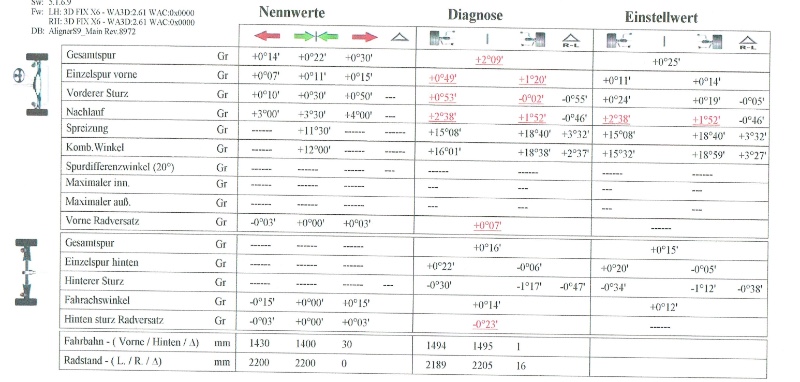 Sw: 5.1.6.9
Fw: LH: 3D FIX X6 - WA3D:2.61 WAC:0x0000
RH: 3D FIX X6 - WA3D:2.61 WAC:0x0000
DB: Aligner89_Main Rev.8972
Nennwerte Diagnose Einstellwert
R-L R-L
Gesamtspur Gr +0°14' +0°22' +0°30' +2°09' +0°25'
Einzelspur vorne Gr +0°07' +0°11' +0°15' +0°49' +1°20' +0°11' +0°14'
Vorderer Sturz Gr +0°10' +0°30' +0°50' --- +0°53' -0°02' -0°55' +0°24' +0°19' -0°05'
Nachlauf Gr +3°00' +3°30' +4°00' --- +2°38' +1°52' -0°46' +2°38' +1°52' -0°46'
Spreizung Gr ------ +11°30' ------ ------ +15°08' +18°40' +3°32' +15°08' +18°40' +3°32'
Komb.Winkel Gr ------ +12°00' ------ ------ +16°01' +18°38' +2°37' +15°32' +18°59' +3°27'
Spurdifferenzwinkel (20°) Gr ------ ------ ------ --- ------ ------ ------ ------
Maximaler inn. Gr ------ ------ ------ --- --- --- ---
Maximaler auß. Gr ------ ------ ------ --- --- --- ---
Vorne Radversatz Gr -0°03' +0°00' +0°03' +0°07' ------
Gesamtspur Gr ------ ------ ------ +0°16' +0°15'
Einzelspur hinten Gr ------ ------ ------ +0°22' -0°06' +0°20' -0°05'
Hinterer Sturz Gr ------ ------ ------ --- -0°30' -1°17' -0°47' -0°34' -1°12' -0°38'
Fahrachswinkel Gr -0°15' +0°00' +0°15' +0°14' +0°12'
Hinten sturz Radversatz Gr -0°03' +0°00' +0°03' -0°23' ------
Fahrbahn - ( Vorne / Hinten / Δ ) mm 1430 1400 30 1494 1495 1
Radstand - ( L. / R. / Δ ) mm 2200 2200 0 2189 2205 16